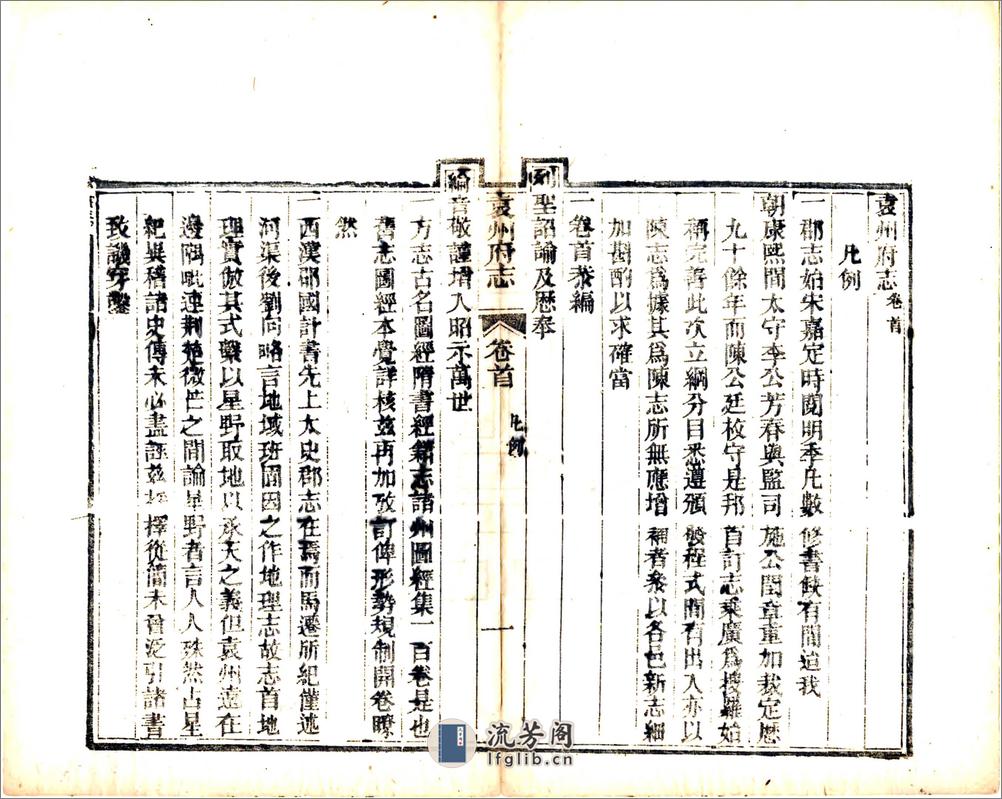 袁州府志 卷首
凡例
一郡志始宋嘉定時閱明季凡數修書缺有間迨我
朝康熙間太守李公芳春與監司施公閏章重加裁定歷
九十餘年而陳公廷枚守是邦首訂志乘廣為搜羅始
稱完善此次立綱分目悉遵頒發程式間有出入亦以
陳志為據其為陳志所無應增補者參以各邑新志細
加斟酌以求確當
一卷首恭編
列
聖詔諭及歷奉
袁州府志
卷首
凡例
一
綸音敬謹增入昭示萬世
一方志古名圖經隋書經籍志諸州圖經集一百卷是也
舊志圖經本覺詳核茲再加攷訂俾形勢規制開卷瞭
然
一西漢郡國計書先上太史郡志在焉而馬遷所紀僅述
河渠後劉向略言地域班固因之作地理志故志首地
理實倣其式繫以星野取地以承天之義但袁州遠在
邊隅毗連荊楚微茫之間論星野者言人人殊然占星
紀異稽諸史傳未必盡誣茲 擇從簡未嘗泛引諸書
致譏穿鑿
流芳阁
lfglib.cn